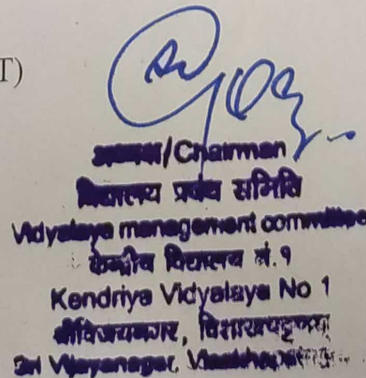 T)
अध्यक्ष/Chairman
विद्यालय प्रबंध समिति
Vidyalaya management committee
केन्द्रीय विद्यालय नं.१
Kendriya Vidyalaya No 1
श्रीविजयनगर, विशाखपट्टणम
Sri Vijayanagar,